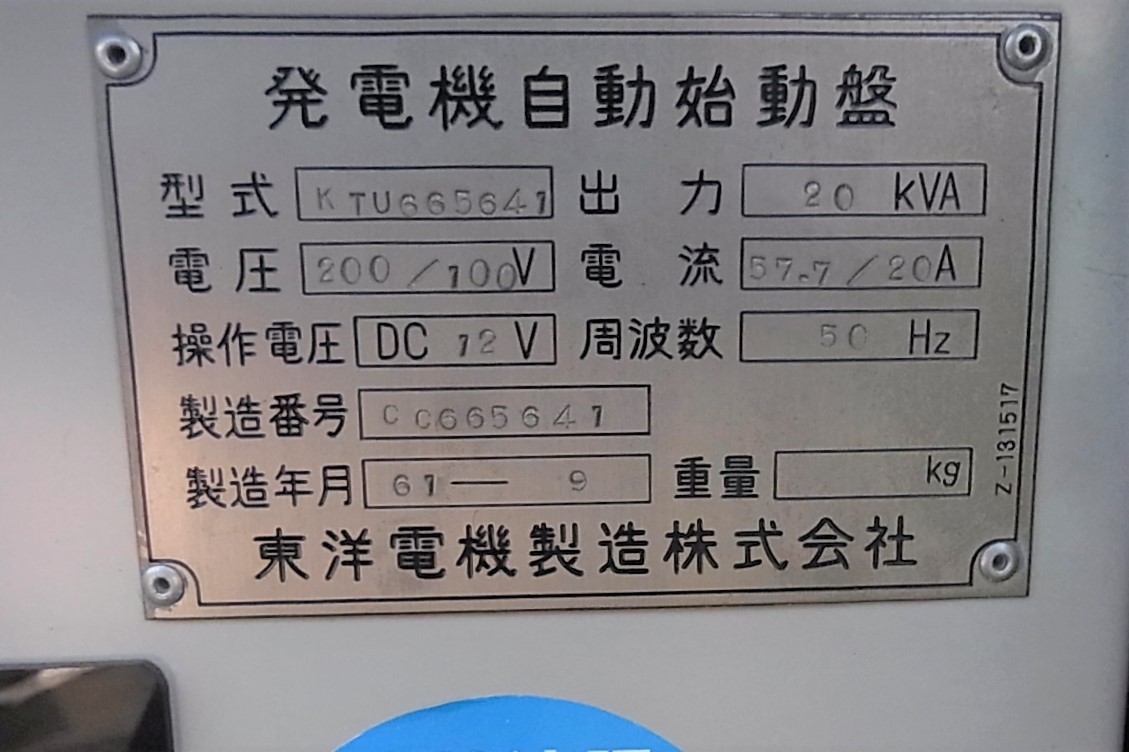 発電機自動始動盤
型式 KTU665641 出力 20 kVA
電圧 200/100V 電流 57.7/20A
操作電圧 DC 12 V 周波数 50 Hz
製造番号 CC665641
製造年月 61— 9 重量 kg
Z-131517
東洋電機製造株式会社